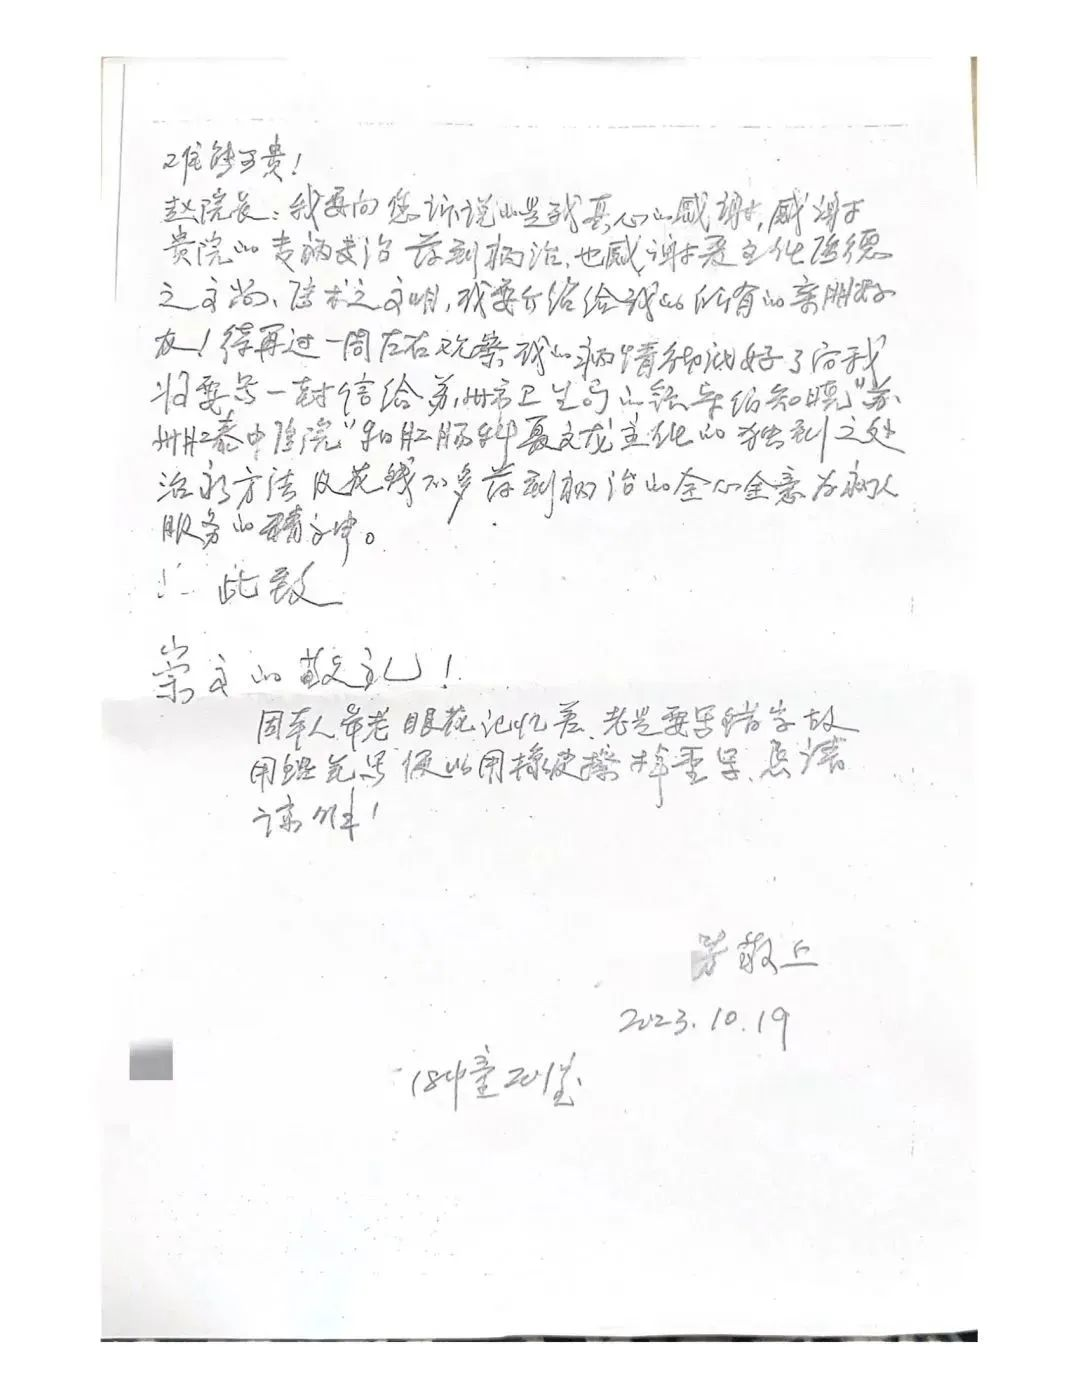 难能可贵！
赵院长：我要向您诉说的是我真心的感谢，感谢
贵院的专病专治药到病治，也感谢聂主任医德
之高尚、医术之文明，我要介绍给我的所有的亲朋好
友！待再过一周左右观察我的病情彻底好了后我
将要写一封信给苏州市卫生局的领导们知晓"苏
州肛泰中医院"和肛肠科聂文龙主任的独到之处
治疗方法及花钱不多药到病治的全心全意为病人
服务的精神。
此致
崇高的敬礼！
因本人年老眼花记忆差、老是要写错字故
用铅笔写便以用橡皮擦掉重写、恳请
谅解！
敬上
2023.10.19
184 201室